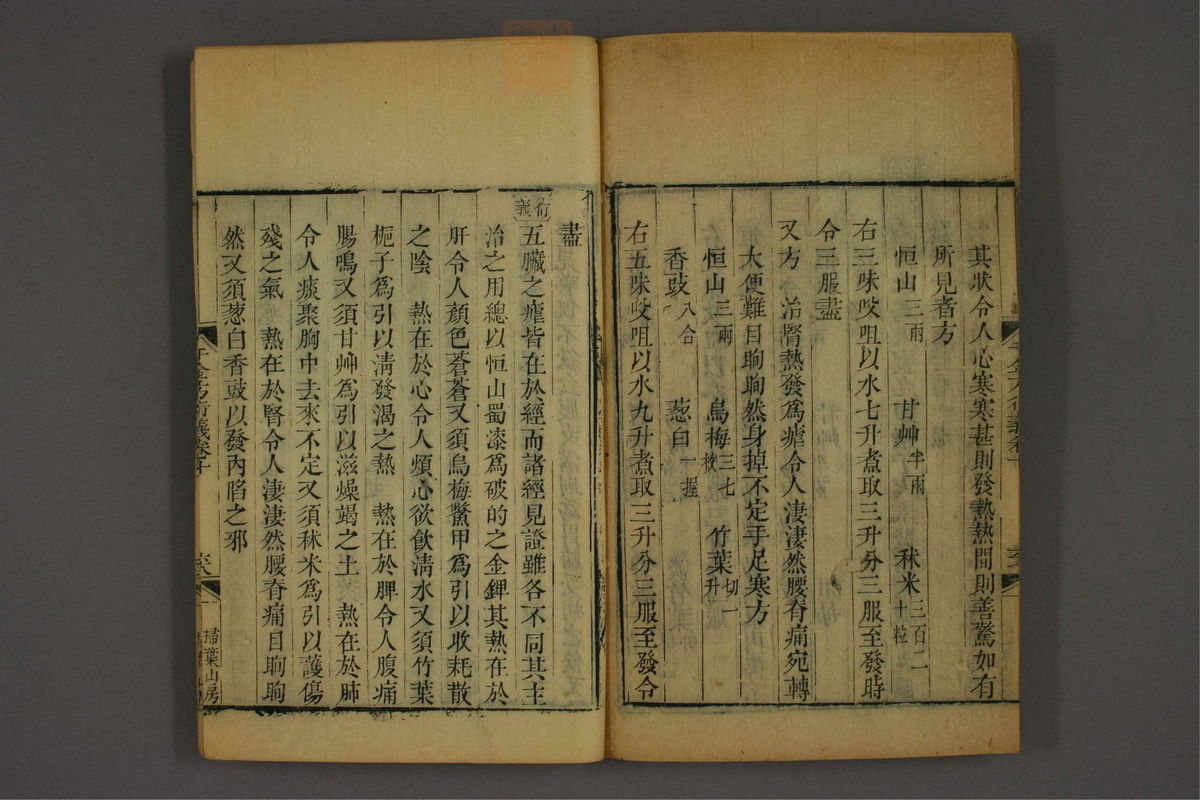 其狀令人心寒寒甚則發熱熱間則善驚如有
所見者方
恒山三兩 甘艸半兩 秫米三百二十粒
右三味㕮咀以水七升煮取三升分三服至發時
令三服盡
又方 治腎熱發爲瘧令人淒淒然腰脊痛宛轉
大便難目眴眴然身掉不定手足寒方
恒山三兩 烏梅三七枚 竹葉切一升
香豉八合 葱白一握
右五味㕮咀以水九升煮取三升分三服至發令
盡
衍義
五臟之瘧皆在於經而諸經見證雖各不同其主
治之用總以恒山蜀漆爲破的之金鎞其熱在於
肝令人顏色蒼蒼又須烏梅鱉甲爲引以收耗散
之陰 熱在於心令人煩心欲飲清水又須竹葉
梔子爲引以清發渴之熱 熱在於脾令人腹痛
腸鳴又須甘艸爲引以滋燥竭之土 熱在於肺
令人痰聚胸中去來不定又須秫米爲引以護傷
殘之氣 熱在於腎令人淒淒然腰脊痛目眴眴
然又須葱白香豉以發內陷之邪
千金方衍義卷十
掃葉山房